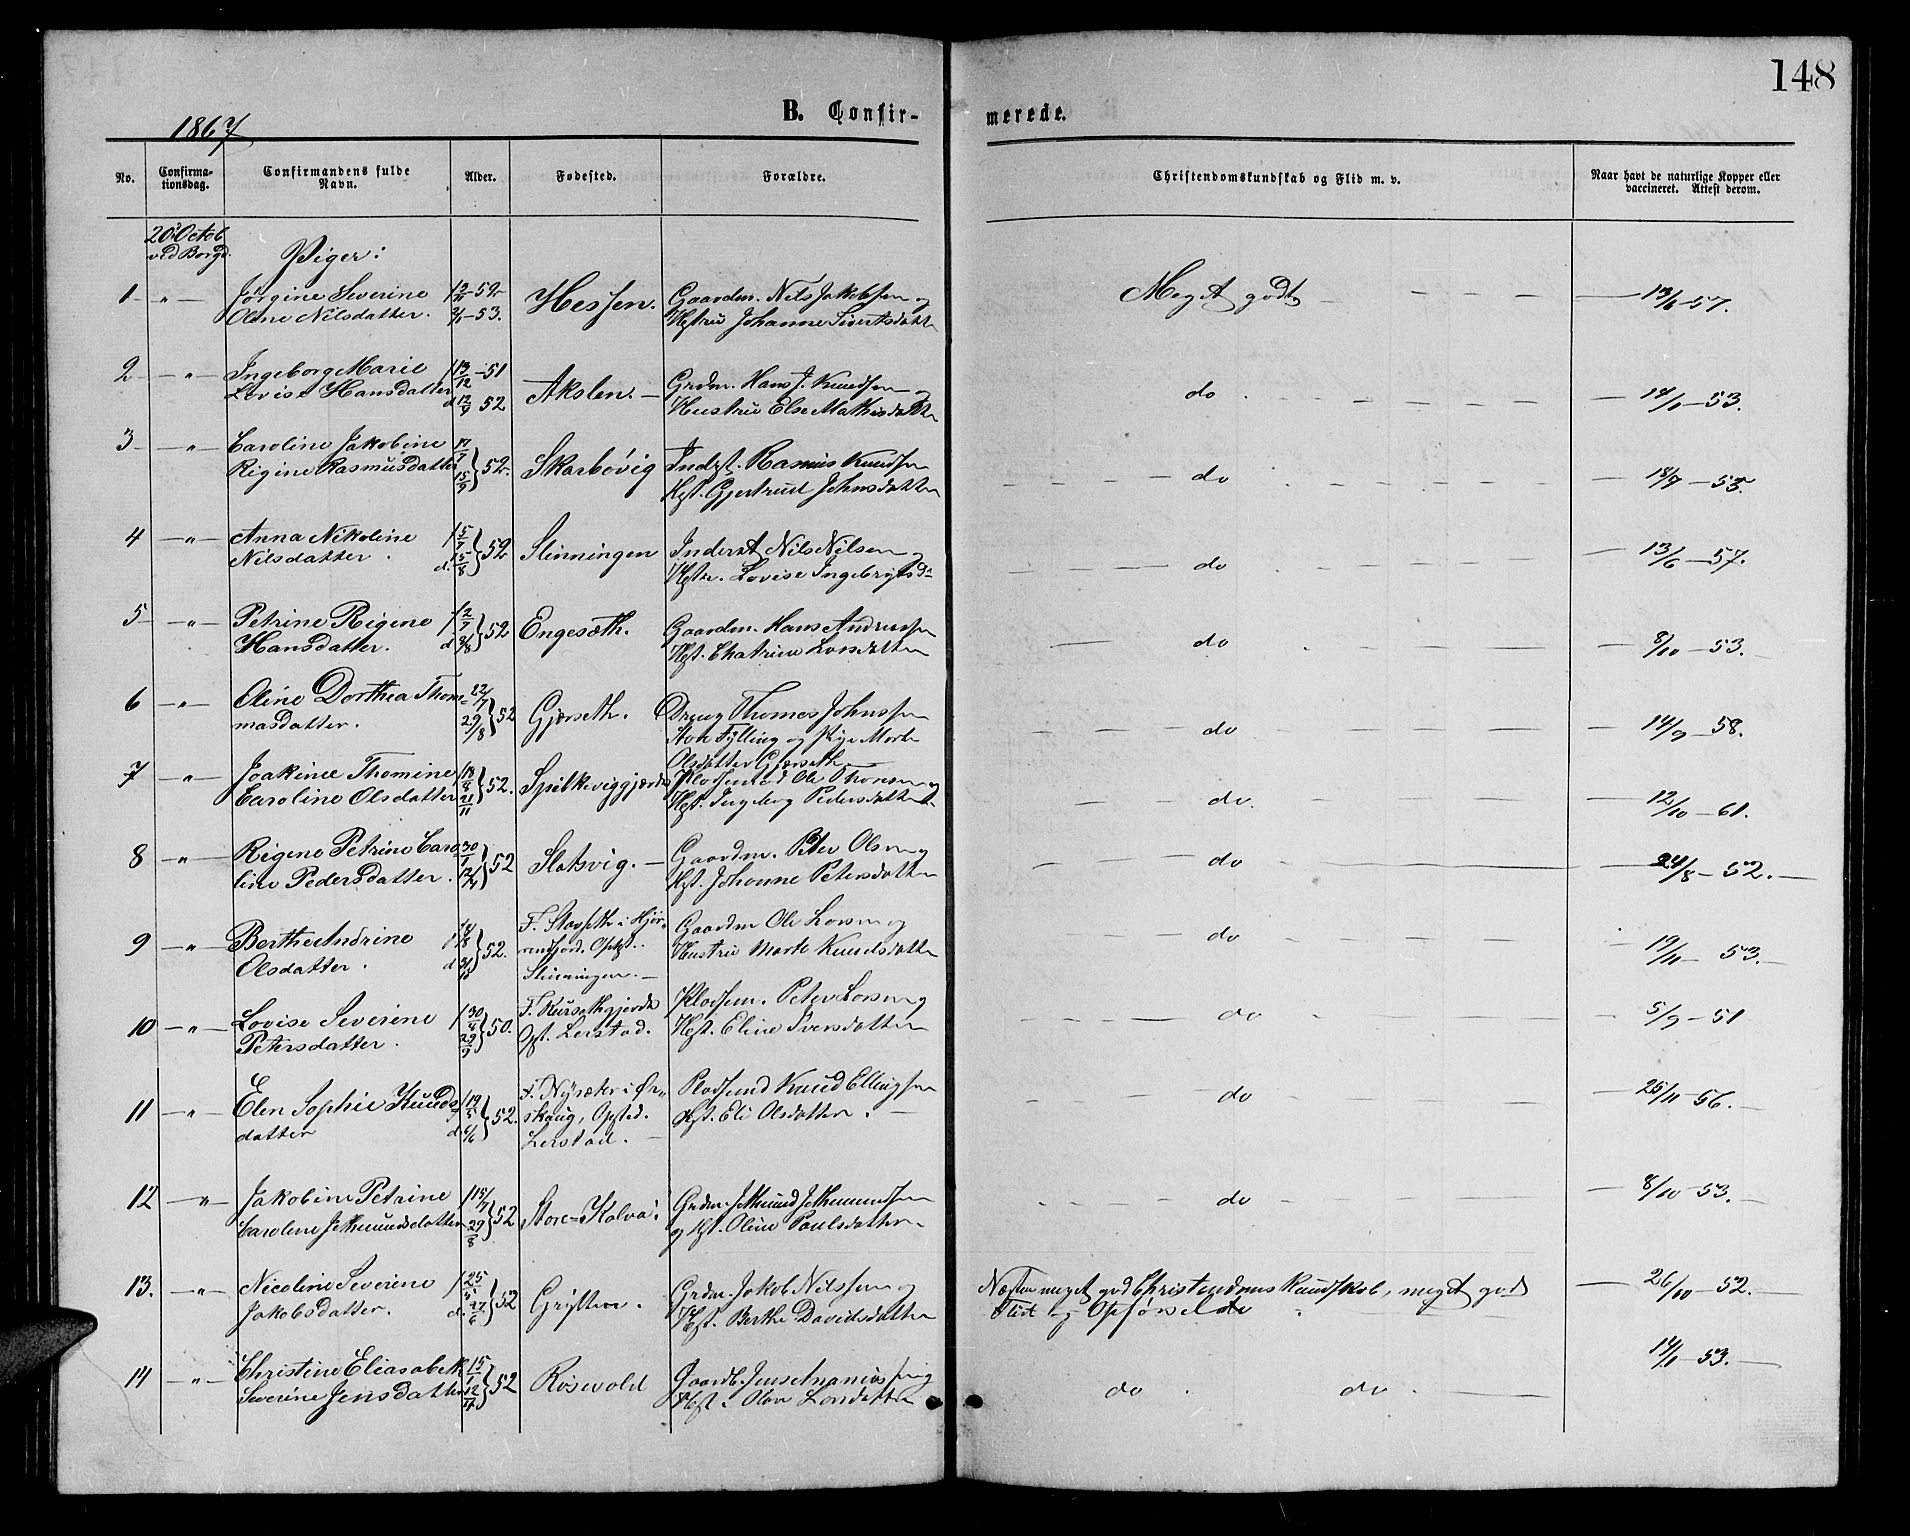 148
1867
B. Confir-
merede.
No.
Confirma-
tionsdag.
Confirmandens fulde
Navn.
Alder.
Fødested.
Forældre.
Christendomskundskab og Flid m. v.
Naar havt de naturlige Kopper eller
vaccineret. Attest derom.
20 Octob
ved Borgd.
Piger:
1 — " — Jørgine Severine Hessen. Gaardm. Nils Jakobsen og Meget godt 13/6 - 57.
Oline Nilsdatter. 2/1 - 53. Hustru Johanne Sivertsdatter
2 — " — Ingeborg Marie 13/12 - 51 Akslen. — Grdm. Hans J. Knudsen og do 14/1 - 53.
Lovise Hansdatter d. 12/9 52 Hustru Else Mathisdatter
3 — " — Caroline Jakobine 17/7 52. Skarbövig Inderst. Rasmus Knudsen do 18/7 - 53.
Rigine Rasmusdatter 15/9 Hst. Gjertrud Johnsdatter
4 — " — Anna Nikoline 5/7 52 Slinningen Inderst Nils Nilsen og do 13/6 - 57.
Nilsdatter. d. 15/8 Hstr. Lovise Ingebrigtsd.
5 — " — Petrine Rigine 2/7 52 Engesæth. Gaardm. Hans Andersen do 8/10 - 53.
Hansdatter. d. /8 Hst. Larsdatter
6 — " — Oline Dorthea Thom- 22/7 52 Gjerseth. Dreng Thomas Johnsen do 14/9 - 58.
masdatter. 29/8 Fylling og Pige Marte
Olsdatter Gjerseth
7 — " — Joakine Thomine 18/8 52. Spilkeviggjerdet Ole Thomsen og do. 12/10 - 61.
Caroline Olsdatter 21/11 Hst. Ingeborg Pedersdatter
8 — " — Rigine Petrine Caro 30/1 52 Slatsvig. — Gaardm. Peter Olsen og do 24/8 - 52.
line Pedersdatter. 12/4 Hst. Johanne Petersdatter
9 — " — Berthe Andrine 52. F. Stavseth i Hjør- Gaardm Ole Larsen og do 19/11 - 53.
Olsdatter. d. 31/10 rundfjord. Opst. Hustru Marte Knudsdatter
Slinningen. —
10 — " — Lovise Severine 30/4 50. F. Kursethgjerdet Pladsem. Peter Larsen og do 5/9 - 51
Petersdatter. 29/9 Opst. Lerstad. Hst. Eline Iversdatter
11 — " — Elen Sophie Knuds- 19/5 52. F. Nysæter i Ør- Pladsemd Knud Ellingsen do 25/11 - 56.
datter d. 6/6 skoug, Opsted. Hst. Eli Olsdatter. —
Lerstad. —
12 — " — Jakobine Petrine 15/7 52 Store-Kalvø. Grdm. Jetmund Jetmundsen do 8/10 - 53.
Caroline Jetmundsdatter 29/8 og Hst. Oline Paulsdatter.
13. — " — Nicoline Severine 25/5 52 Grytten. Grdm. Jakob Nilssen og Næsten meget god Christendomskundskab, meget god 26/10 - 52.
Jakobsdatter. d. 27/6 Hst. Berthe Davidsdatter Flid og Opførsel
14 — " — Christine Eliasabeth 15/1 52 Rösevold Gaardb. Jens Ananiassen og do. do. 14/1 - 53.
Severine Jensdatter 12/4 Hst. Olave Larsdatter